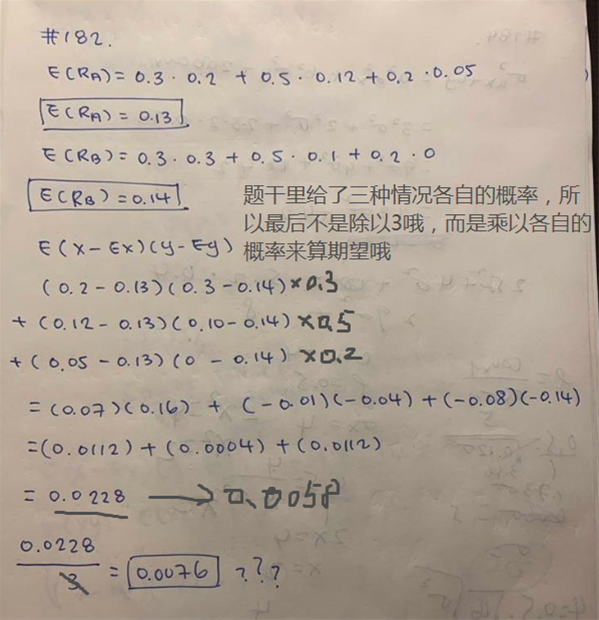 #182.
E(RA) = 0.3 · 0.2 + 0.5 · 0.12 + 0.2 · 0.05
E(RA) = 0.13
E(RB) = 0.3 · 0.3 + 0.5 · 0.1 + 0.2 · 0
E(RB) = 0.14
题干里给了三种情况各自的概率，所
以最后不是除以3哦，而是乘以各自的
概率来算期望哦
E(x - Ex)(y - Ey)
(0.2 - 0.13)(0.3 - 0.14) ×0.3
+ (0.12 - 0.13)(0.10 - 0.14) ×0.5
+ (0.05 - 0.13)(0 - 0.14) ×0.2
= (0.07)(0.16) + (-0.01)(-0.04) + (-0.08)(-0.14)
= (0.0112) + (0.0004) + (0.0112)
= 0.0228 → 0.0058
0.0228
3
= 0.0076 ???